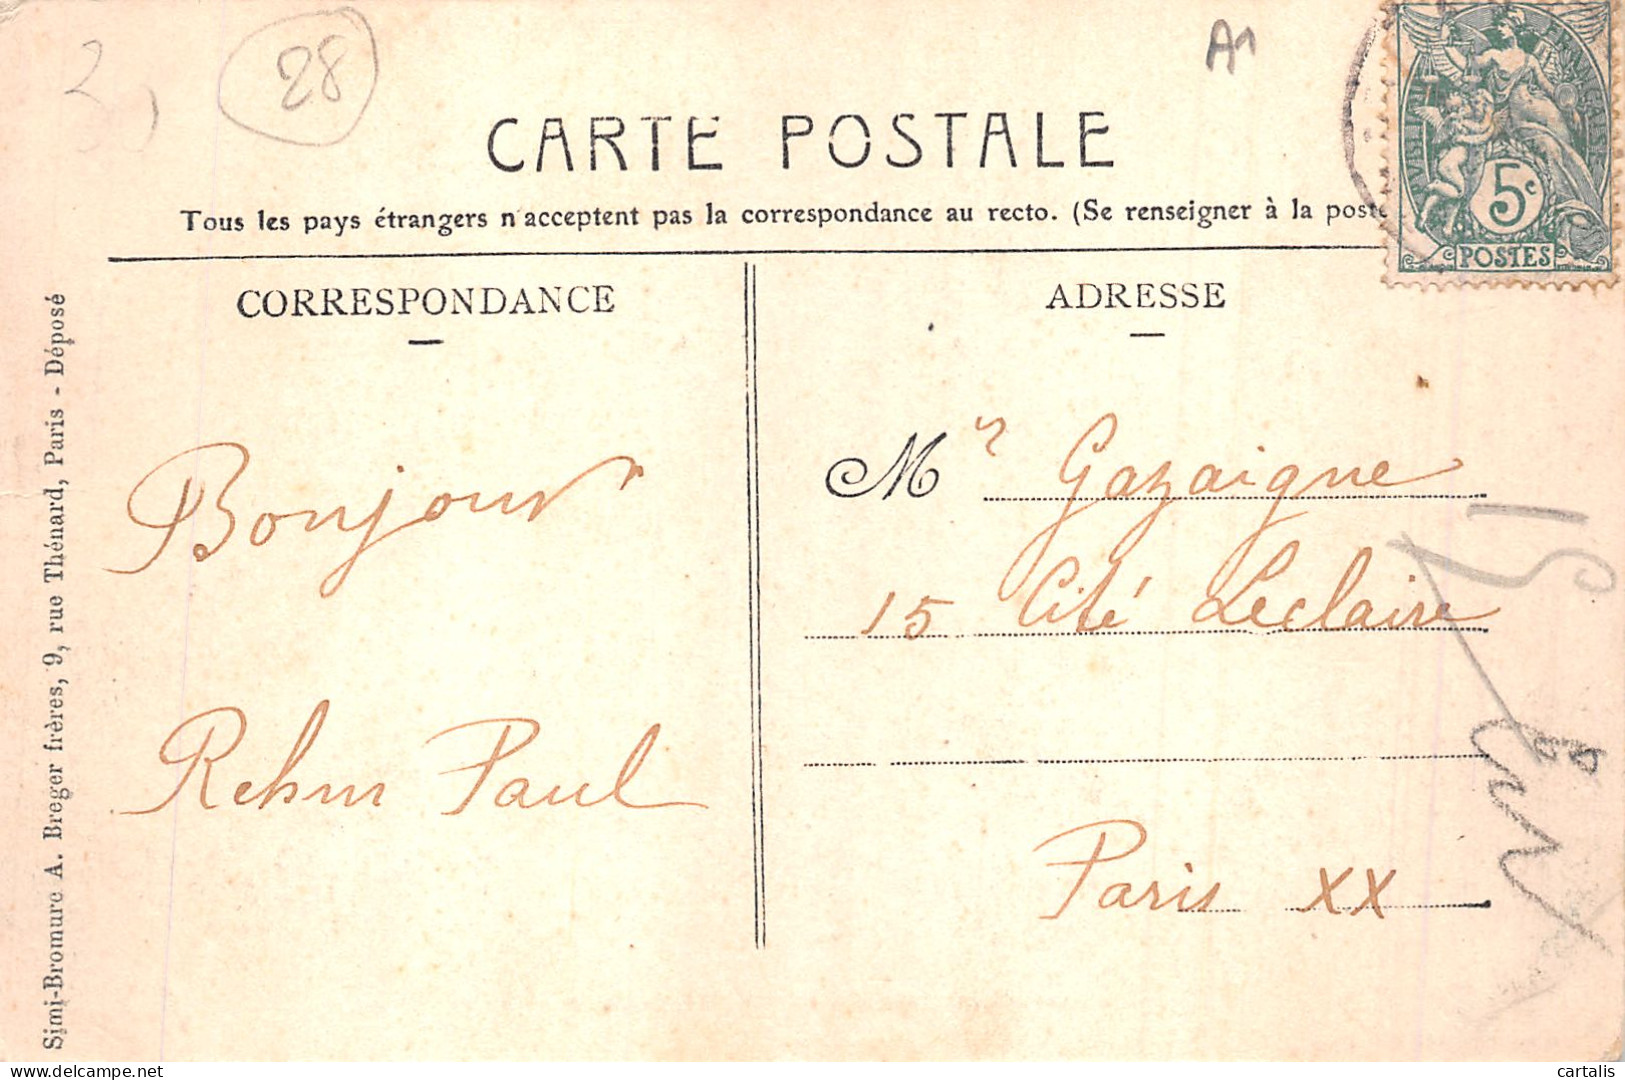 28
A1
CARTE POSTALE
Tous les pays étrangers n'acceptent pas la correspondance au recto. (Se renseigner à la poste
5c
POSTES
CORRESPONDANCE
ADRESSE
Bonjour
Rehm Paul
Mr Gazaigne
15 Cité Leclaire
Paris XX
Simi-Bromure A. Breger frères, 9, rue Thénard, Paris - Déposé
www.delcampe.net
cartalis